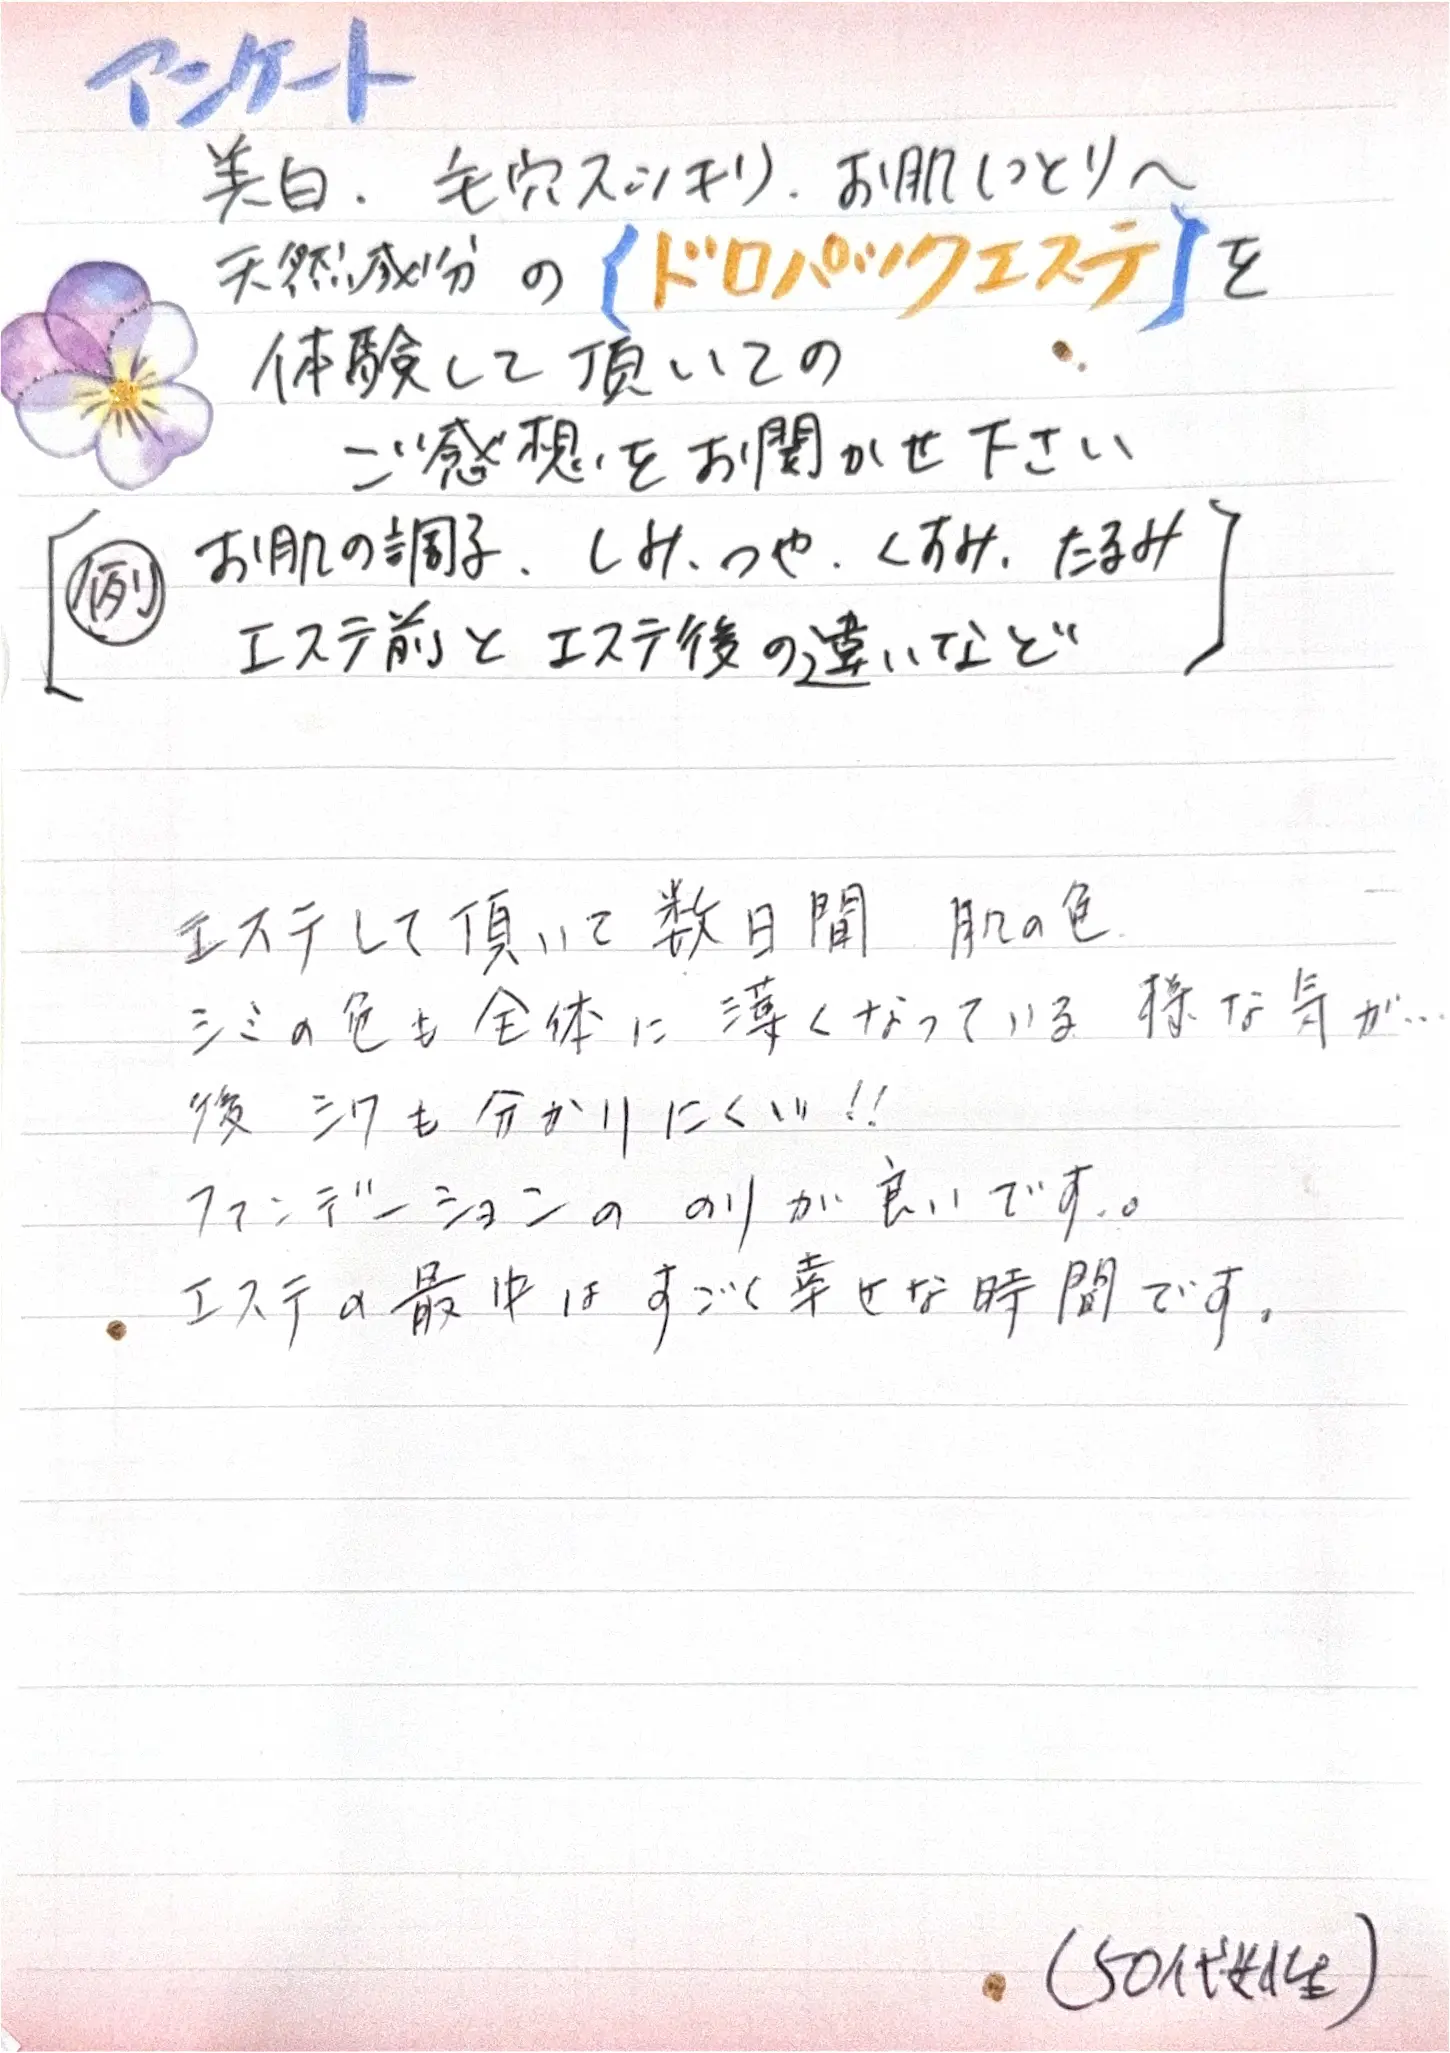 アンケート
美白、毛穴スッキリ、お肌しっとりへ
天然成分の【ドロパックエステ】を
体験して頂いての
ご感想をお聞かせ下さい
例 お肌の調子、しみ、つや、くすみ、たるみ
エステ前とエステ後の違いなど
エステして頂いて数日間 肌の色
シミの色も全体に薄くなっている様な気が…
後 シワも分かりにくい!!
ファンデーションの のりが良いです。
エステの最中は すごく幸せな時間です。
(50代女性)